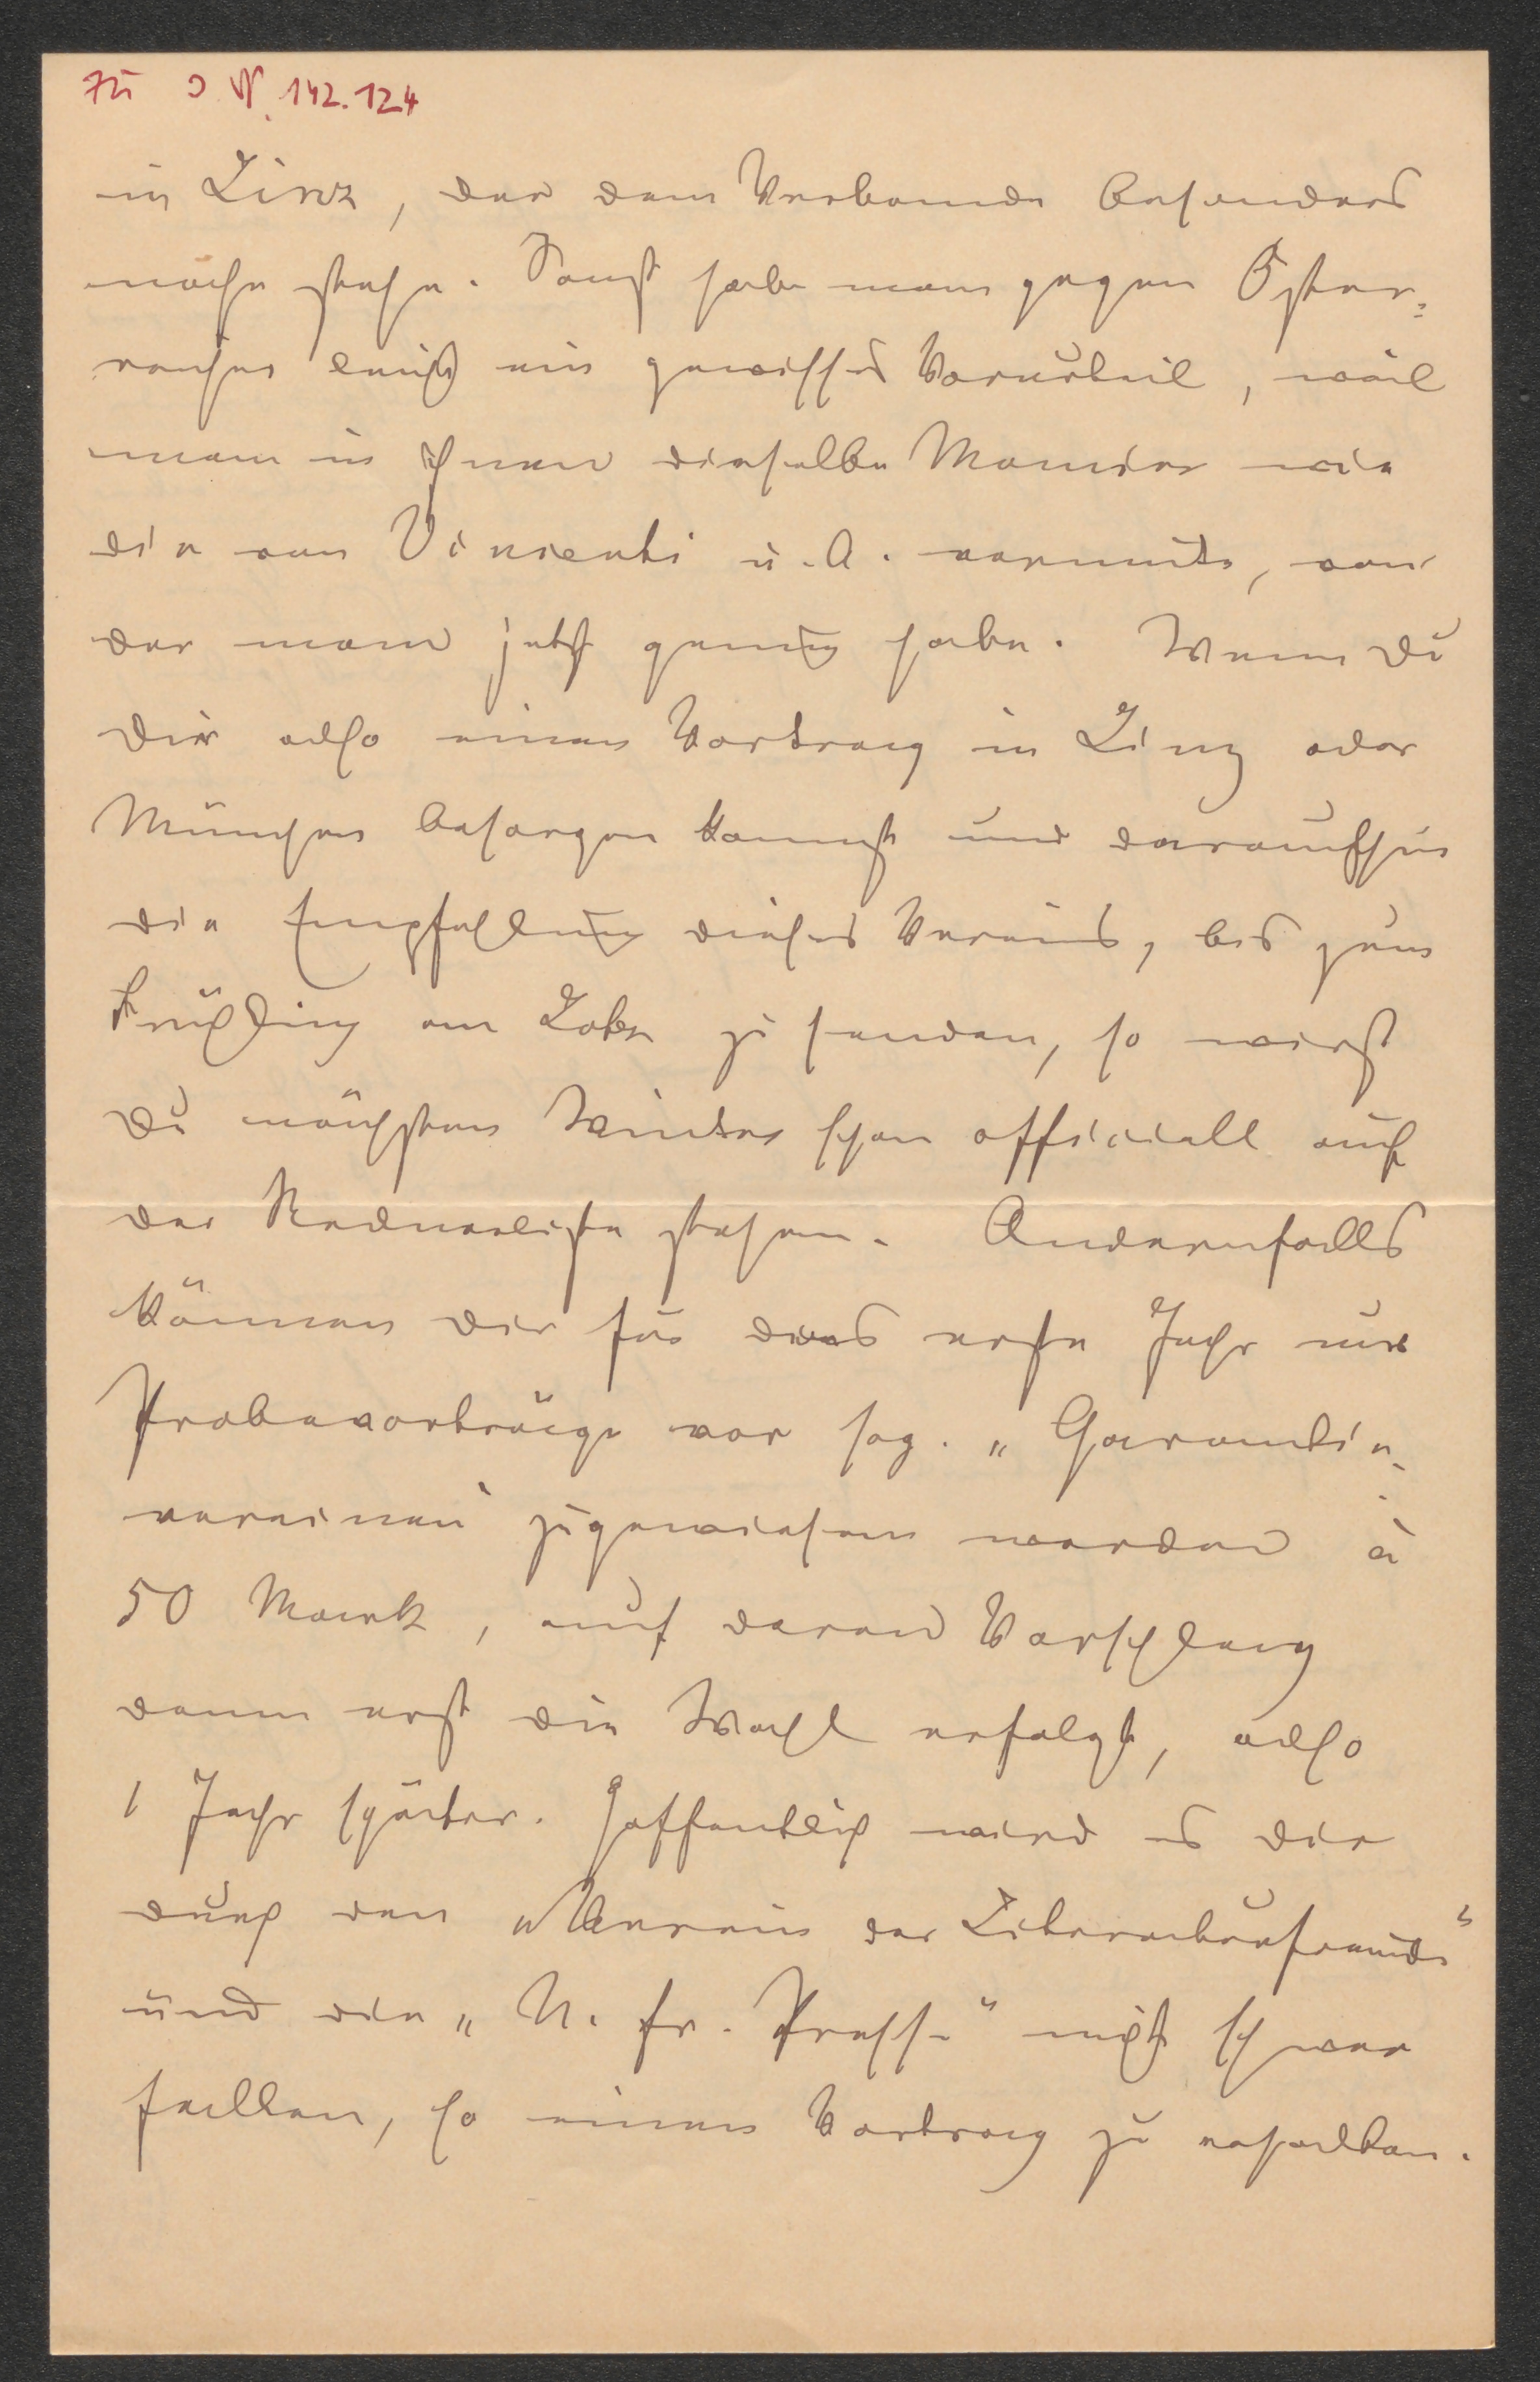 Zu I. N. 142.124
in Linz, der dem Verbande besonders
nahe stehe. Sonst habe man gegen Öster-
reicher leicht ein gewisses Vorurteil, weil
man in ihnen dieselbe Manier wie
die von Vincenti u. A. vermute, von
der man jetzt genug habe. Wenn Du
Dir also einen Vortrag in Linz oder
München besorgen kannst und daraufhin
die Empfehlung dieses Vereins, bis zum
Frühling an zu senden, so wirst
Du nächsten Winter schon officiell auf
der Rednerliste stehen. Andernfalls
können Dir für das erste Jahr nur
Probevorträge vor sog. „Garantie-
vereinen" zugewiesen werden à
50 Mark, auf deren Vorschlag
dann erst die Wahl erfolgt, also
1 Jahr später. Hoffentlich wird es Dir
durch den „Verein der Literaturfreunde"
und die „N. fr. Presse" nicht schwer
fallen, so einen Vortrag zu erhalten.